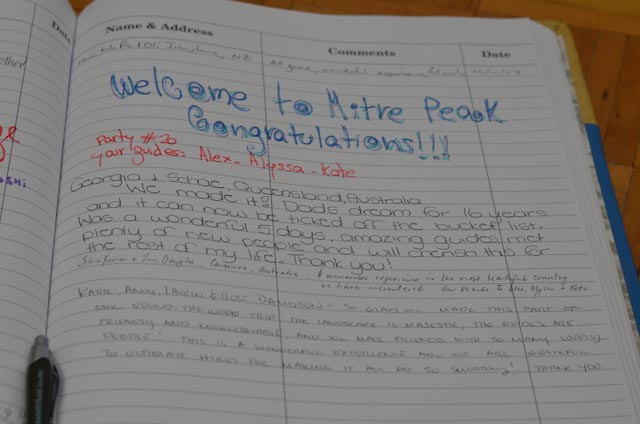 Date
Name & Address
Comments
Date
Welcome to Mitre Peak
Congratulations!!!
Party #20
your guides: Alex - Alyssa - Kate
Georgia + Queensland, Australia
We made it? Dads dream for 16 years
and it can now be ticked off the bucket list.
Was a wonderful 5 days, amazing guides, met
plenty of new people and will cherish this for
the rest of my life. Thank you!
Douglas, Australia. A memorable experience in the most beautiful country
we have encountered. Our thanks to Alex, Alyssa + Kate
Andy, Lauren & Rose Davidson - So glad we made this part of
our round-the-word trip. The landscape is majestic, the guides are
friendly and knowledgeable, and we made friends with so many lovely
people! This is a wonderful experience and we are grateful
to Ultimate Hikes for making it all go so smoothly! Thank you